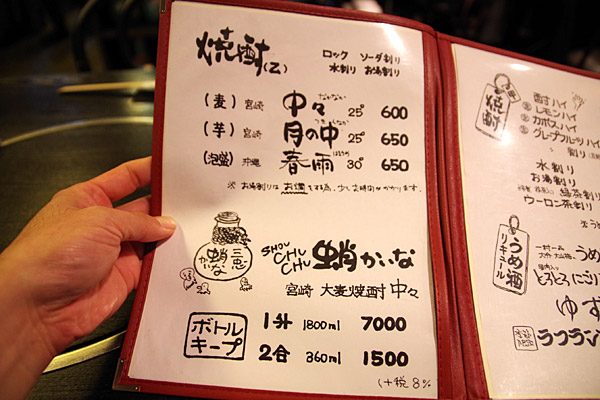 焼酎(乙)
ロック ソーダ割り
水割り お湯割り
(麦) 宮崎 中々 25° 600
(芋) 宮崎 月の中 25° 650
(泡盛) 沖縄 春雨 30° 650
SHOU CHU CHU 蛸かいな
宮崎 大麦焼酎 中々
ボトルキープ
1升 1800ml 7000
2合 360ml 1500
(+税 8%
焼酎
酎ハイ
レモンハイ
カボスハイ
グレープフルーツハイ
割り
水割り
お湯割り
緑茶割り
ウーロン茶割り
うめ酒
リキュール
うめ
とろとろ
ゆず
ラフラン